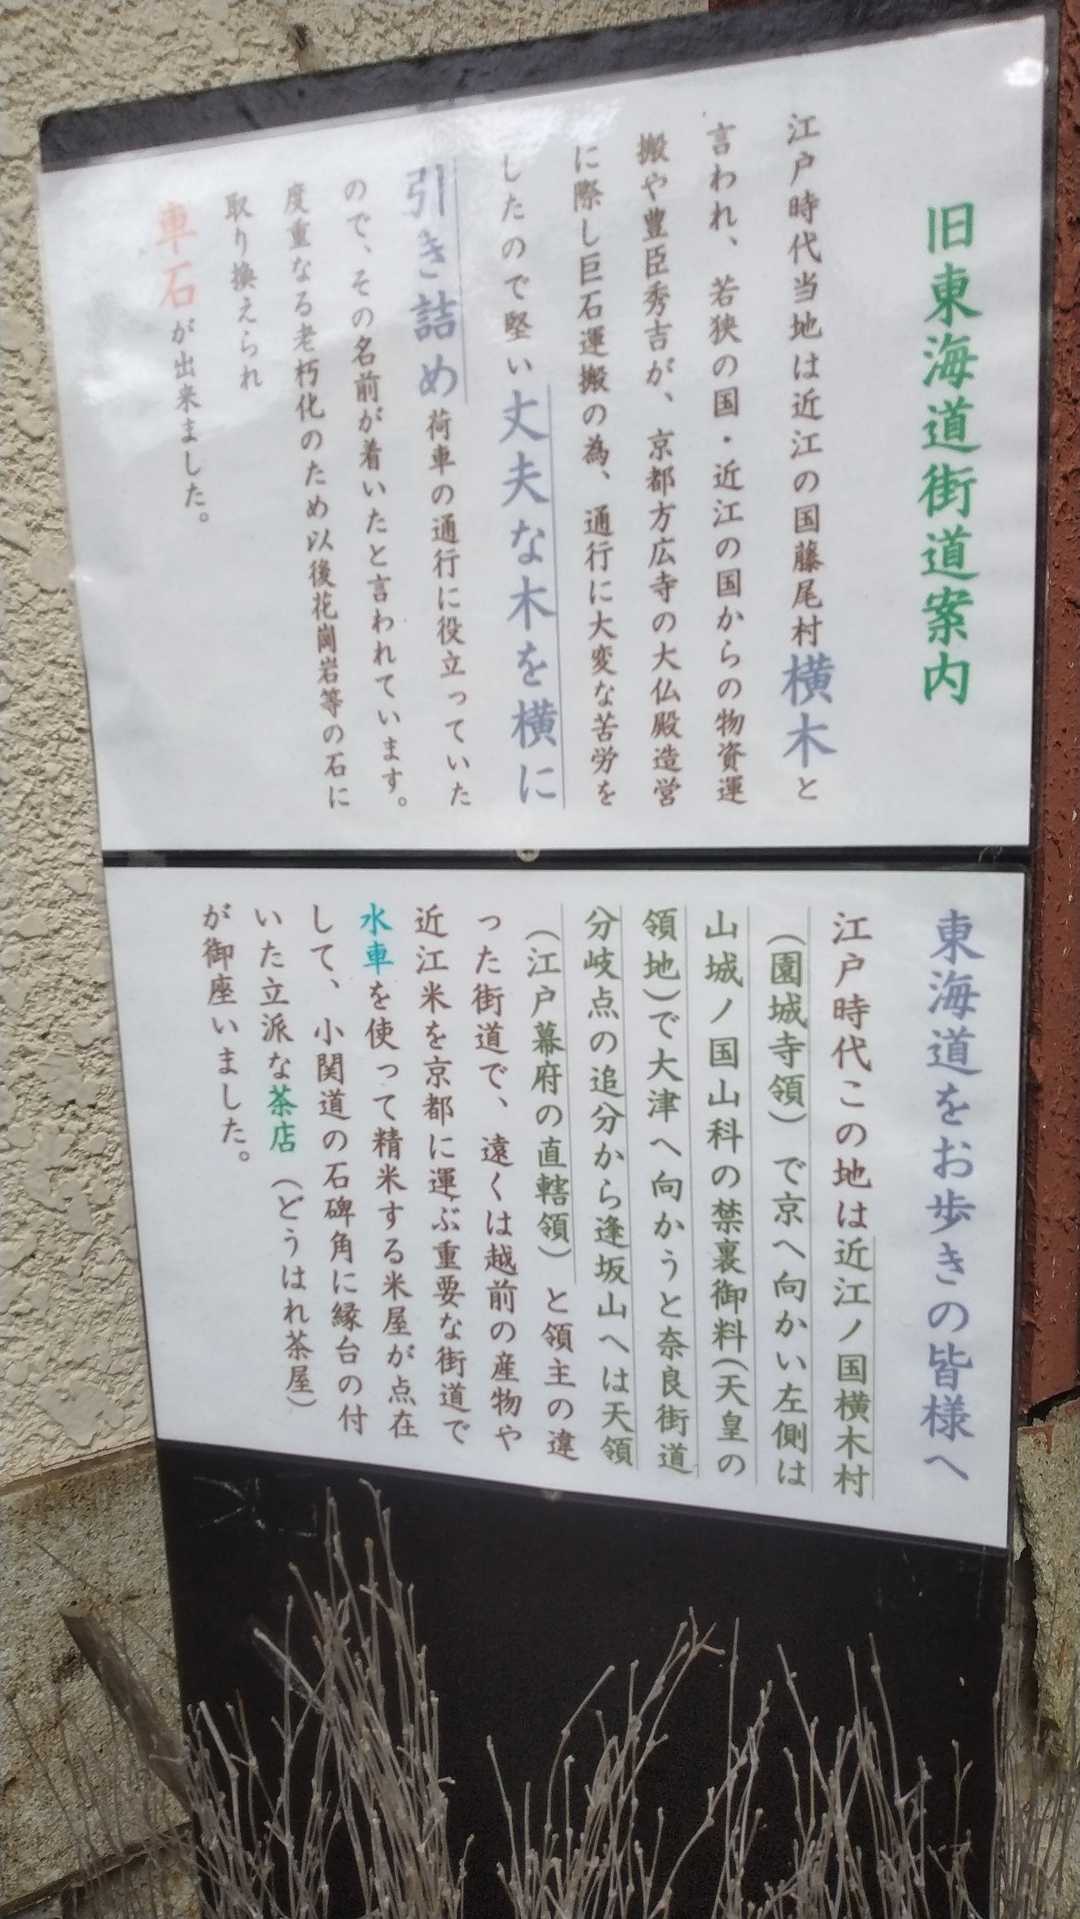 旧東海道街道案内
江戸時代当地は近江の国藤尾村横木と
言われ、若狭の国・近江の国からの物資運
搬や豊臣秀吉が、京都方広寺の大仏殿造営
に際し巨石運搬の為、通行に大変な苦労を
したので堅い丈夫な木を横に
引き詰め荷車の通行に役立っていた
ので、その名前が着いたと言われています。
度重なる老朽化のため以後花崗岩等の石に
取り換えられ
車石が出来ました。
東海道をお歩きの皆様へ
江戸時代この地は近江ノ国横木村
(園城寺領)で京へ向かい左側は
山城ノ国山科の禁裏御料(天皇の
領地)で大津へ向かうと奈良街道
分岐点の追分から逢坂山へは天領
(江戸幕府の直轄領)と領主の違
った街道で、遠くは越前の産物や
近江米を京都に運ぶ重要な街道で
水車を使って精米する米屋が点在
して、小関道の石碑角に縁台の付
いた立派な茶店(どうはれ茶屋)
が御座いました。